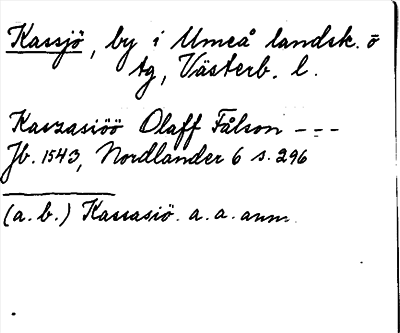 Kassjö, by i Umeå landsk. o
tg, Västerb. l.
Kaszasiöö Olaff Fålson - - -
Jb. 1543, Nordlander 6 s. 296
(a. b.) Kassasiö. a. a. anm.